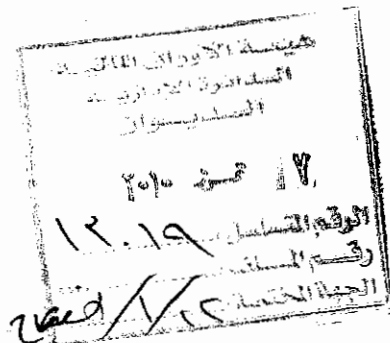 هيئة الأوراق المالية
الدائرة الإدارية
الديوان
١٧ تموز ٢٠١٠
الرقم المتسلسل ١٢٠١٩
رقم الملف
الجهة المختصة